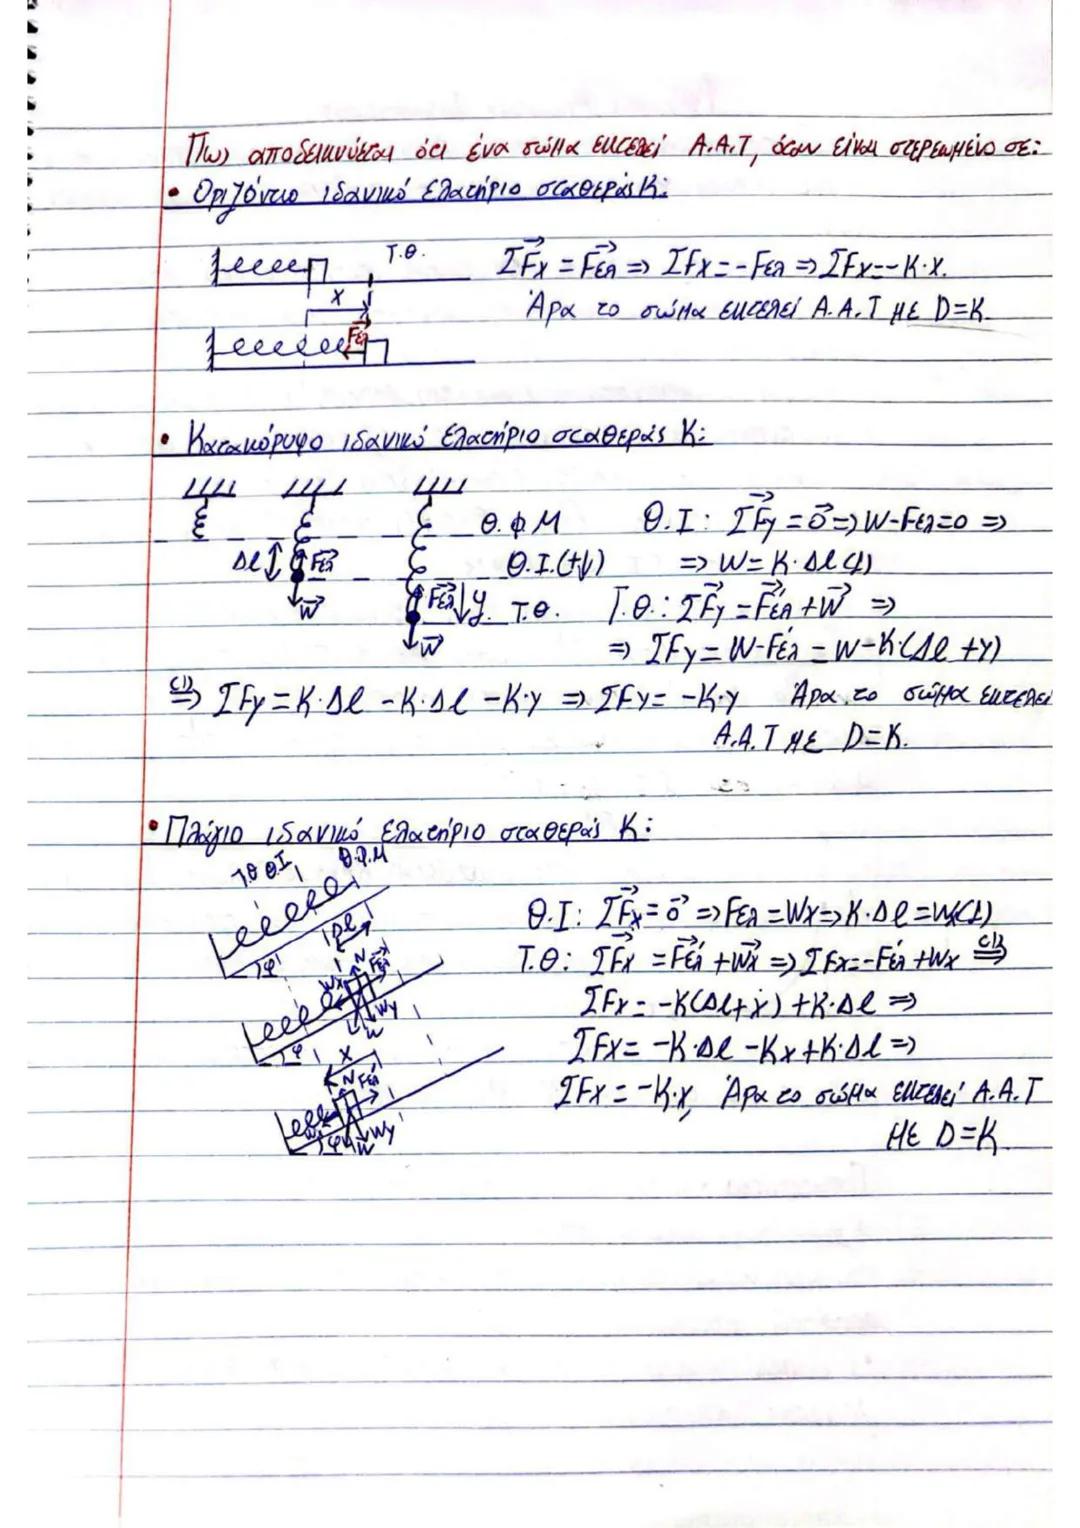 Πως αποδεικνύεται ότι ένα σώμα εκτελεί Α.Α.Τ, όταν είναι στερεωμένο σε:
• Οριζόντιο ιδανικό ελατήριο σταθεράς Κ:
Τ.Θ.
x
Fελ
ΣFx = Fελ => ΣFx = -Fελ => ΣFx = -K·x.
Άρα το σώμα εκτελεί Α.Α.Τ με D=K.
• Κατακόρυφο ιδανικό ελατήριο σταθεράς Κ:
Θ.Φ.Μ
Δl Fελ Θ.Ι.(+↓)
W
Fελ y Τ.Θ.
W
Θ.Ι: ΣFy = 0 => W-Fελ=0 =>
=> W = K·Δl (1)
Τ.Θ.: ΣFy = Fελ' + W =>
=> ΣFy = W-Fελ' = W-K·(Δl +y)
(1) => ΣFy = K·Δl - K·Δl - K·y => ΣFy = -K·y Άρα το σώμα εκτελεί
Α.Α.Τ με D=K.
• Πλάγιο ιδανικό ελατήριο σταθεράς Κ:
Τ.Θ Θ.Ι Θ.Φ.Μ
Δl
φ
N Fελ
Wx
Wy
W
φ
x
N Fελ'
Wx
Wy
φ W
Θ.Ι: ΣFx = 0 => Fελ = Wx => K·Δl = Wx (1)
Τ.Θ: ΣFx = Fελ' + Wx => ΣFx = -Fελ' + Wx (1) =>
ΣFx = -K(Δl+x) + K·Δl =>
ΣFx = -K·Δl - Kx + K·Δl =>
ΣFx = -K·x, Άρα το σώμα εκτελεί Α.Α.Τ
με D=K